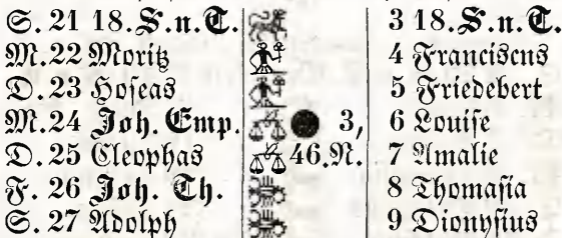 S. 21 18. S. n. T. 3 18. S. n. T.
M. 22 Moritz 4 Franciscus
D. 23 Hoſeas 5 Friedebert
M. 24 Joh. Emp. 3, 6 Louiſe
D. 25 Cleophas 46. N. 7 Amalie
F. 26 Joh. Th. 8 Thomaſia
S. 27 Adolph 9 Dionyſius